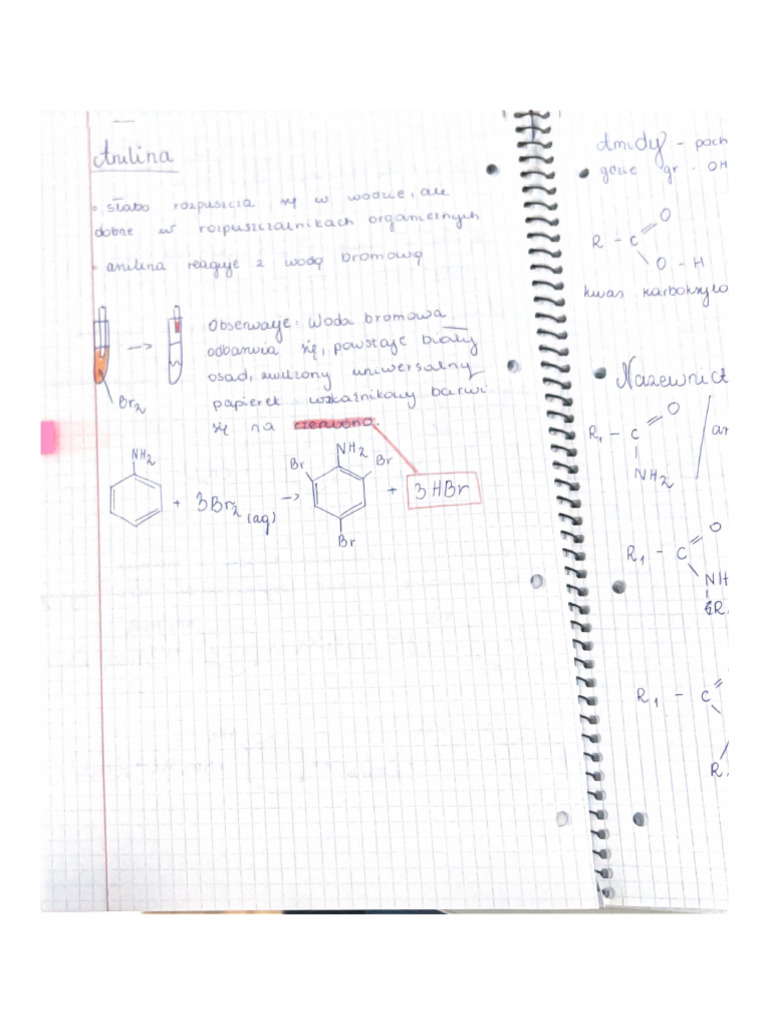 Anilina
• słabo rozpuszcza się w wodzie, ale
dobrze w rozpuszczalnikach organicznych
• anilina reaguje z wodą bromową
Obserwacje: Woda bromowa
odbarwia się, powstaje biały
osad, zwilżony uniwersalny
papierek wskaźnikowy barwi
się na czerwono.
Br2
NH2 + 3Br2 (aq) → NH2 Br Br Br + 3HBr
Amidy – poch
gdzie gr. OH
R – C = O \ O – H
kwas karboksylo
• Nazewnict
R1 – C = O \ NH2 /
R1 – C = O \ NH
R1 – C =
R